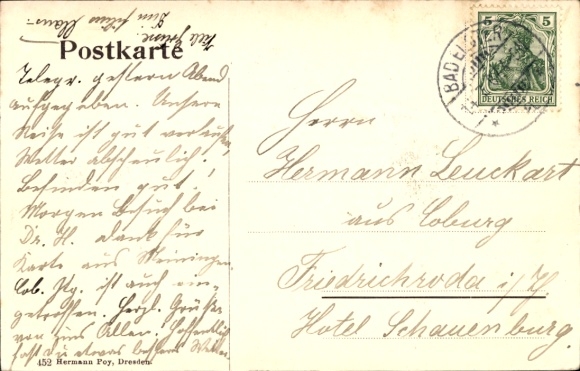 Viele Grüsse.
Dein
Postkarte
Telegr. gestern Abend
aufgegeben. Unsere
Reise ist gut verlaufen
Wetter abscheulich!
Befinden gut!
Morgen Besuch bei
Dr. H. Dank für
Karte aus Meiningen.
Cob. Ztg. ist auch ein-
getroffen. Herzl. Grüße
von uns Allen. Hoffentlich
hast Du etwas besseres Wetter
452 Hermann Poy, Dresden.
5 5
DEUTSCHES REICH
BAD ELSTER
Herrn
Hermann Leuckart
aus Coburg
Friedrichroda i/Th
Hotel Schauenburg.